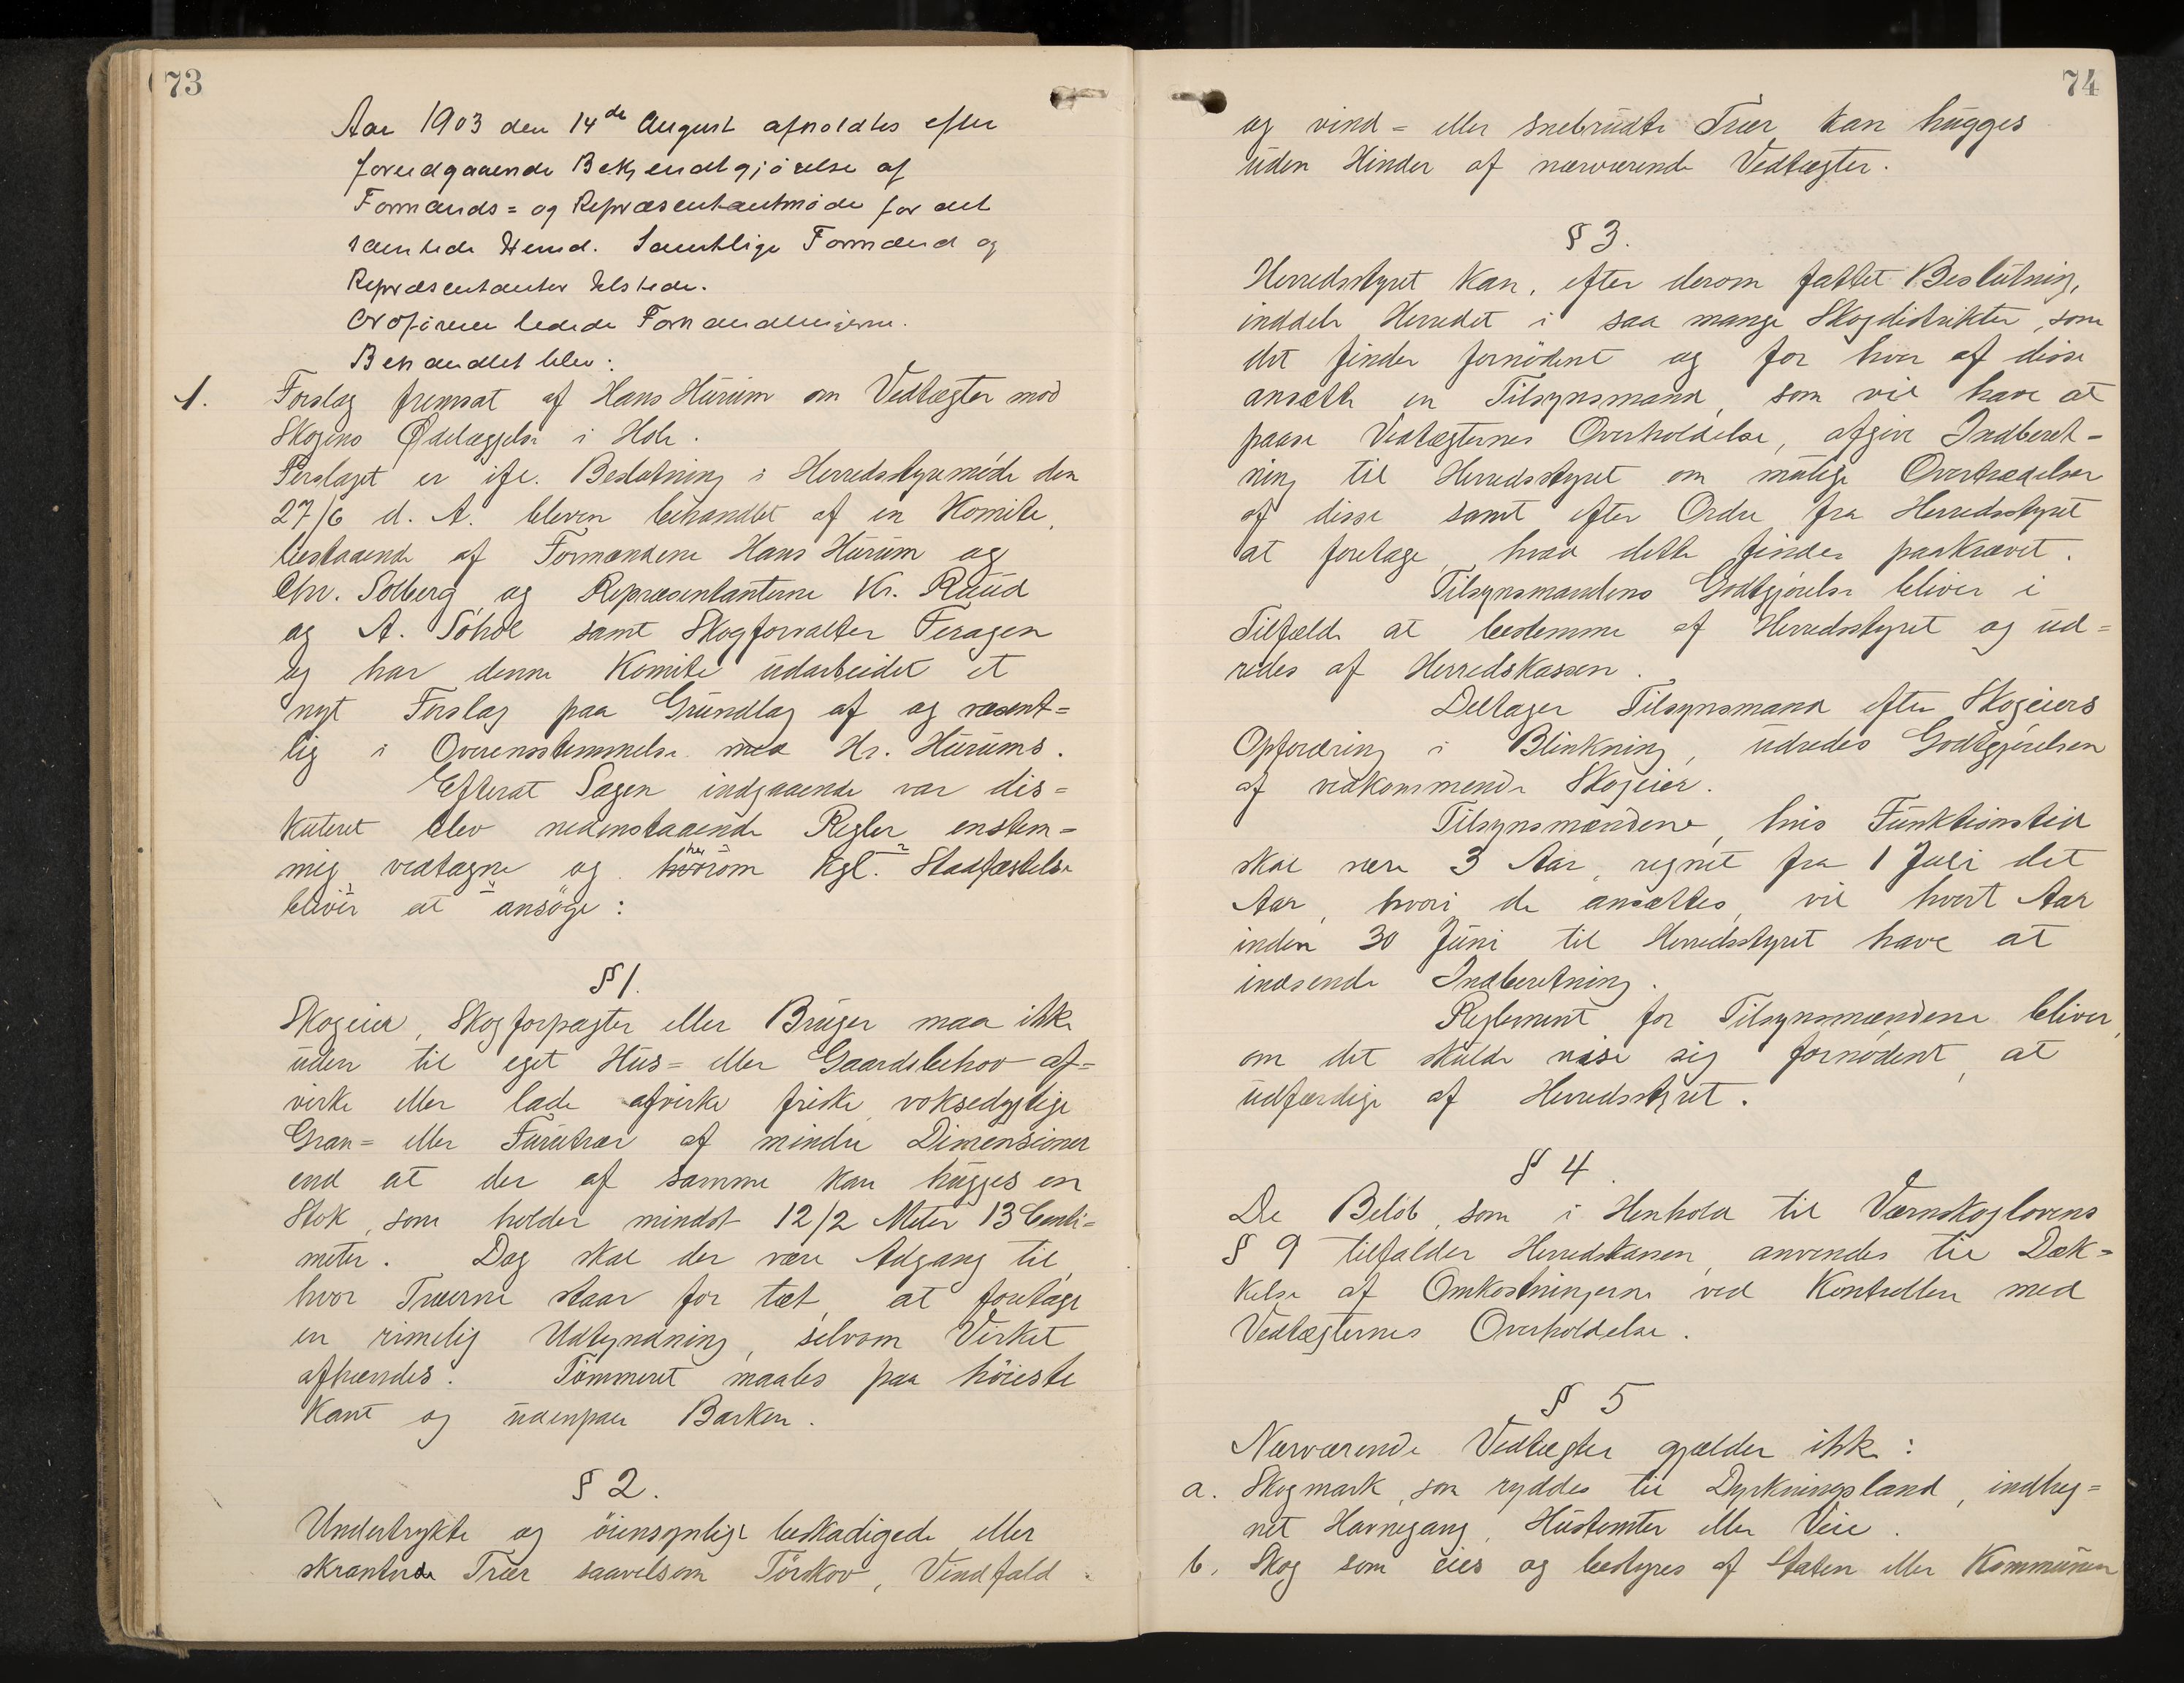 73
Aar 1903 den 14de August afholdtes efter
forudgaaende Bekjendtgjörelse af
Formands= og Repræsentantmöde for det
samlede Herred. Samtlige Formænd og
Repræsentanter tilstede.
Ordföreren ledede Forhandlingerne.
Behandlet blev:
1. Forslag fremsat af Hans Hurum om Vedtægter mod
Skogens Ödelæggelse i Hole.
Forslaget er ifl. Beslutning i Herredsstyremöde den
27/6 d. A. bleven behandlet af en Komite,
bestaaende af Formændene Hans Hurum og
Chr. Solberg og Repræsentanterne Kr. Ruud
og A. Söhol samt Skogforvalter Feragen
og har denne Komite udarbeidet et
nyt Forslag paa Grundlag af og væsent=
lig i Overensstemmelse med Hr. Hurums.
Efterat Sagen indgaaende var dis=
kuteret blev nedenstaaende Regler enstem=
mig vedtagne og hvorom Kgl. Stadfæstelse
bliver at ansöge:
§ 1.
Skogeier, Skogforpagter eller Bruger maa ikke
uden til eget Hus= eller Gaardsbehov af=
virke eller lade afvirke friske voksedygtige
Gran= eller Furutrær af mindre Dimensioner
end at der af samme kan hugges en
Stok, som holder mindst 12/2 Meter 13 Centi=
meter. Dog skal der være Adgang til,
hvor Træerne staar for tæt, at foretage
en rimelig Udtynding, selvom Virket
afhændes. Tömmeret maales paa höieste
Kant og udenpaa Barken.
§ 2.
Undertrykte og öiensynlige beskadigede eller
skrantende Trær saavelsom Törskov, Vindfald
74
og vind= eller snebrudte Trær kan hugges
uden Hinder af nærværende Vedtægter.
§ 3.
Herredsstyret kan, efter derom fattet Beslutning,
inddele Herredet i saa mange Skogdistrikter, som
det finder fornödent og for hver af disse
ansætte en Tilsynsmand, som vil have at
paase Vedtægternes Overholdelse, afgive Indberet-
ning til Herredsstyret om mulige Overtrædelser
af disse samt efter Ordre fra Herredsstyret
at foretage, hvad dette finder paakrævet.
Tilsynsmandens Godtgjörelse bliver i
Tilfælde at bestemme af Herredsstyret og ud=
redes af Herredskassen.
Deltager Tilsynsmand efter Skogeiers
Opfordring i Blinkning, udredes Godtgjörelsen
af vedkommende Skogeier.
Tilsynsmændene, hvis Funktionstid
skal være 3 Aar, regnet fra 1 Juli det
Aar, hvori de ansættes, vil hvert Aar
inden 30 Juni til Herredsstyret have at
indsende Indberetning.
Reglement for Tilsynsmændene bliver,
om det skulde vise sig fornödent, at
udfærdige af Herredsstyret.
§ 4.
De Belöb, som i Henhold til Værnskoglovens
§ 9 tilfalder Herredskassen, anvendes til Dæk=
kelse af Omkostningerne ved Kontrollen med
Vedtægternes Overholdelse.
§ 5
Nærværende Vedtægter gjælder ikke:
a. Skogmark, som ryddes til Dyrkningsland, indheg=
net Havnegang, Hustomter eller Veie.
b. Skog som eies og bestyres af Staten eller Kommunen